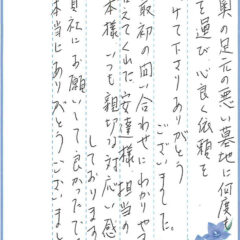 奥の足元の悪い墓地に何度も
を運び心良く依頼を
けて下さりありがとう
ございました。
最初の問い合わせにわかりや
答えてくれた安達様、担当の
本様いつも親切な対応に感
しております
貴社にお願いして良かったで
本当にありがとうございまし